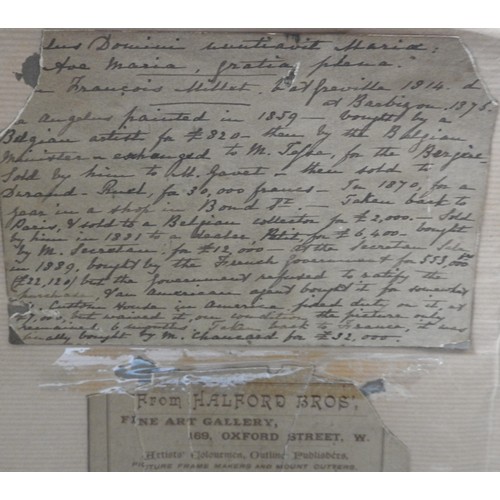 lus Domini nuntiavit Maria:
Ave Maria, gratia plena."
François Millet. b. at Greville 1814. d
at Barbizon. 1875.
angelus painted in 1859 - bought by a
Belgian artist for £320 - then by the Belgian
Minister - exchanged to M. for the Bergère
Sold by him to M. Gavet - then sold to
Durand-Ruel, for 30,000 francs - In 1870, for a
year in a shop in Bond St. - Taken back to
Paris, & sold to a Belgian collector for £2,000 - Sold
by him in 1881 to a dealer Petit for £6,400 - bought
by M. Secretan for £12,000 - at the Secretan Sale
in 1889, bought by the French Government for 553,000
(£22,120) but the Government refused to ratify the
purchase, & an American agent bought it for somewhat
Custom House in America fixed duty on it, at
£7,000, but waived it, on condition the picture only
remained 6 months. Taken back to France, it was
finally bought by M. Chauchard for £32,000.
From HALFORD BROS',
FINE ART GALLERY,
169, OXFORD STREET, W.
Artists' Colourmen, Outline Publishers,
PICTURE FRAME MAKERS AND MOUNT CUTTERS.